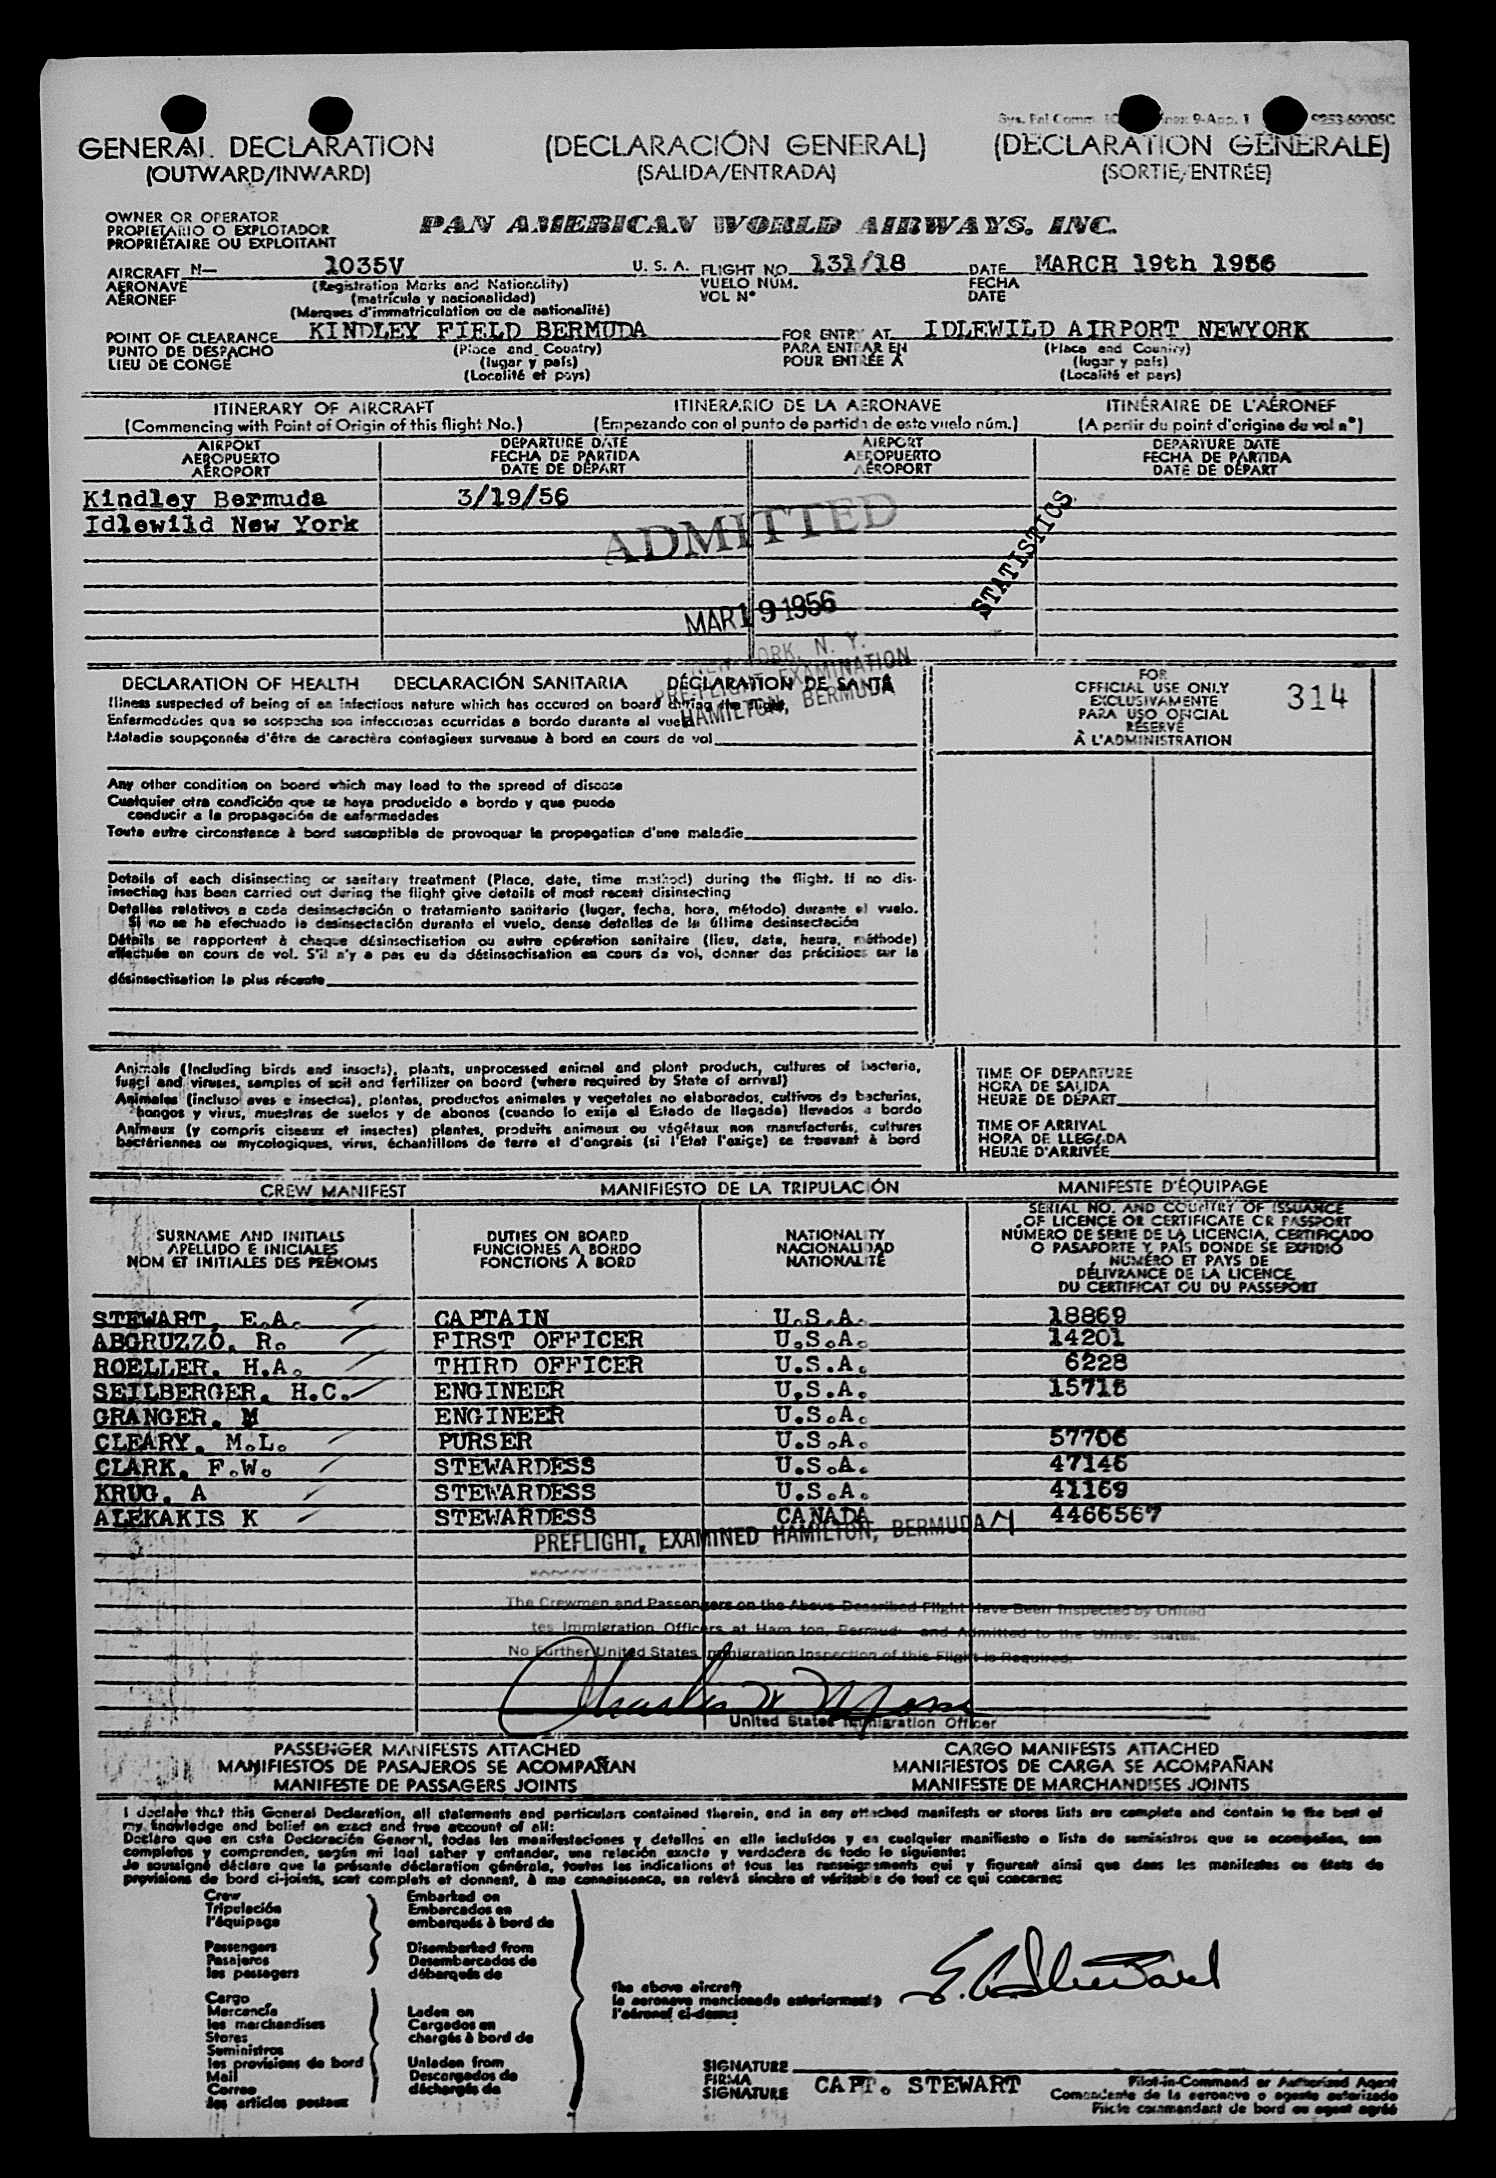 GENERAL DECLARATION
(OUTWARD/INWARD)
(DECLARACIÓN GENERAL)
(SALIDA/ENTRADA)
(DECLARATION GÉNÉRALE)
(SORTIE/ENTRÉE)
OWNER OR OPERATOR
PROPIETARIO O EXPLOTADOR
PROPRIÉTAIRE OU EXPLOITANT
PAN AMERICAN WORLD AIRWAYS, INC.
AIRCRAFT N— 1035V U. S. A. FLIGHT NO. 131/18 DATE MARCH 19th 1956
AERONAVE (Registration Marks and Nationality) VUELO NÚM. FECHA
AÉRONEF (matrícula y nacionalidad) VOL N° DATE
(Marques d'immatriculation ou de nationalité)
POINT OF CLEARANCE KINDLEY FIELD BERMUDA FOR ENTRY AT IDLEWILD AIRPORT NEWYORK
PUNTO DE DESPACHO (Place and Country) PARA ENTRAR EN (Place and Country)
LIEU DE CONGÉ (lugar y país) POUR ENTRÉE À (lugar y país)
(Localité et pays) (Localité et pays)
ITINERARY OF AIRCRAFT ITINERARIO DE LA AERONAVE ITINÉRAIRE DE L'AÉRONEF
(Commencing with Point of Origin of this flight No.) (Empezando con el punto de partida de este vuelo núm.) (A partir du point d'origine du vol n°)
AIRPORT DEPARTURE DATE AIRPORT DEPARTURE DATE
AEROPUERTO FECHA DE PARTIDA AEROPUERTO FECHA DE PARTIDA
AÉROPORT DATE DE DÉPART AÉROPORT DATE DE DÉPART
Kindley Bermuda 3/19/56
Idlewild New York
ADMITTED
STATISTICS
MAR 19 1956
NEW YORK, N. Y.
PREFLIGHT EXAMINATION
HAMILTON, BERMUDA
DECLARATION OF HEALTH DECLARACIÓN SANITARIA DÉCLARATION DE SANTÉ
Illness suspected of being of an infectious nature which has occured on board during the flight
Enfermedades que se sospecha son infecciosas ocurridas a bordo durante el vuelo
Maladie soupçonnée d'être de caractère contagieux survenue à bord en cours de vol
FOR
OFFICIAL USE ONLY
EXCLUSIVAMENTE
PARA USO OFICIAL
RÉSERVÉ
À L'ADMINISTRATION
314
Any other condition on board which may lead to the spread of disease
Cualquier otra condición que se haya producido a bordo y que pueda
conducir a la propagación de enfermedades
Toute autre circonstance à bord susceptible de provoquer la propagation d'une maladie
Details of each disinsecting or sanitary treatment (Place, date, time method) during the flight. If no dis-
insecting has been carried out during the flight give details of most recent disinsecting
Detalles relativos a cada desinsectación o tratamiento sanitario (lugar, fecha, hora, método) durante el vuelo.
Si no se ha efectuado la desinsectación durante el vuelo, dense detalles de la última desinsectación
Détails se rapportent à chaque désinsectisation ou autre opération sanitaire (lieu, date, heure, méthode)
effectuée en cours de vol. S'il n'y a pas eu de désinsectisation en cours de vol, donner des précisions sur la
désinsectisation la plus récente
Animals (Including birds and insects), plants, unprocessed animal and plant products, cultures of bacteria,
fungi and viruses, samples of soil and fertilizer on board (where required by State of arrival)
Animales (incluso aves e insectos), plantas, productos animales y vegetales no elaborados, cultivos de bacterias,
hongos y virus, muestras de suelos y de abonos (cuando lo exija el Estado de llegada) llevados a bordo
Animaux (y compris oiseaux et insectes) plantes, produits animaux ou végétaux non manufacturés, cultures
bactériennes ou mycologiques, virus, échantillons de terre et d'engrais (si l'État l'exige) se trouvant à bord
TIME OF DEPARTURE
HORA DE SALIDA
HEURE DE DÉPART
TIME OF ARRIVAL
HORA DE LLEGADA
HEURE D'ARRIVÉE
CREW MANIFEST MANIFIESTO DE LA TRIPULACIÓN MANIFESTE D'ÉQUIPAGE
SURNAME AND INITIALS
APELLIDO E INICIALES
NOM ET INITIALES DES PRÉNOMS
DUTIES ON BOARD
FUNCIONES A BORDO
FONCTIONS À BORD
NATIONALITY
NACIONALIDAD
NATIONALITÉ
SERIAL NO. AND COUNTRY OF ISSUANCE
OF LICENCE OR CERTIFICATE OR PASSPORT
NÚMERO DE SERIE DE LA LICENCIA, CERTIFICADO
O PASAPORTE Y PAÍS DONDE SE EXPIDIÓ
NUMÉRO ET PAYS DE
DÉLIVRANCE DE LA LICENCE
DU CERTIFICAT OU DU PASSEPORT
STEWART, E.A. CAPTAIN U.S.A. 18869
ABGRUZZO, R. FIRST OFFICER U.S.A. 14201
ROELLER, H.A. THIRD OFFICER U.S.A. 6228
SEILBERGER, H.C. ENGINEER U.S.A. 15715
GRANGER, M ENGINEER U.S.A.
CLEARY, M.L. PURSER U.S.A. 57706
CLARK, F.W. STEWARDESS U.S.A. 47146
KRUG, A STEWARDESS U.S.A. 41169
ALEKAKIS K STEWARDESS CANADA 4466567
PREFLIGHT, EXAMINED HAMILTON, BERMUDA
The Crewmen and Passengers on the Above Described Flight Have Been Inspected by United
tes Immigration Officers at Ham ton, Bermud and Admitted to the United States.
No Further United States Immigration Inspection of this Flight is Required.
United States Immigration Officer
PASSENGER MANIFESTS ATTACHED
MANIFIESTOS DE PASAJEROS SE ACOMPAÑAN
MANIFESTE DE PASSAGERS JOINTS
CARGO MANIFESTS ATTACHED
MANIFIESTOS DE CARGA SE ACOMPAÑAN
MANIFESTE DE MARCHANDISES JOINTS
I declare that this General Declaration, all statements and particulars contained therein, and in any attached manifests or stores lists are complete and contain to the best of
my knowledge and belief an exact and true account of all:
Declaro que en esta Declaración General, todas las manifestaciones y detalles en ella incluídos y en cualquier manifiesto o lista de suministros que se acompañan, son
completos y comprenden, según mi leal saber y entender, una relación exacta y verdadera de todo lo siguiente:
Je soussigné déclare que la présente déclaration générale, toutes les indications et tous les renseignements qui y figurent ainsi que dans les manifestes ou états de
provisions de bord ci-joints, sont complets et donnent, à ma connaissance, un relevé sincère et véritable de tout ce qui concerne:
Crew
Tripulación
l'équipage
Passengers
Pasajeros
les passagers
Cargo
Mercancía
les marchandises
Stores
Suministros
les provisions de bord
Mail
Correo
les articles postaux
Embarked on
Embarcados en
embarqués à bord de
Disembarked from
Desembarcados de
débarqués de
Laden on
Cargados en
chargés à bord de
Unladen from
Descargados de
déchargés de
the above aircraft
la aeronave mencionada anteriormente
l'aéronef ci-dessus
E. A. Stewart
SIGNATURE
FIRMA
SIGNATURE
CAPT. STEWART
Pilot-in-Command or Authorized Agent
Comandante de la aeronave o agente autorizado
Pilote commandant de bord ou agent agréé